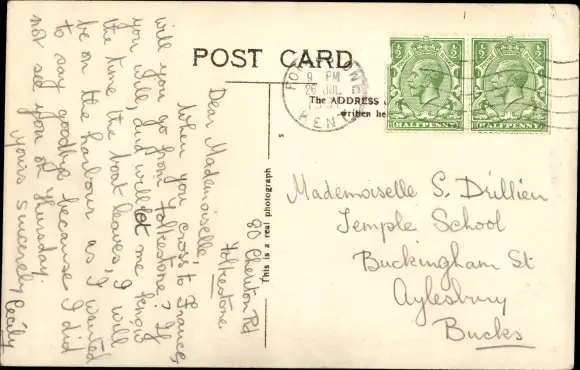 POST CARD
The ADDRESS
written he
This is a real photograph
9 PM
26 JUL
KENT
HALFPENNY
HALFPENNY
80 Cheriton Rd
Folkestone
Dear Mademoiselle,
When you cross to France,
will you go from Folkestone? If
you will, and will let me know
the time the boat leaves, I will
be on the harbour as I wanted
to say goodbye because I did
not see you on Thursday.
Yours sincerely
Cecily
Mademoiselle S. Drillien
Temple School
Buckingham St
Aylesbury
Bucks